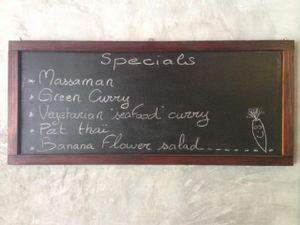 Specials
* Massaman
* Green Curry
* Vegetarian "seafood" curry
* Pat thaï
* Banana Flower salad